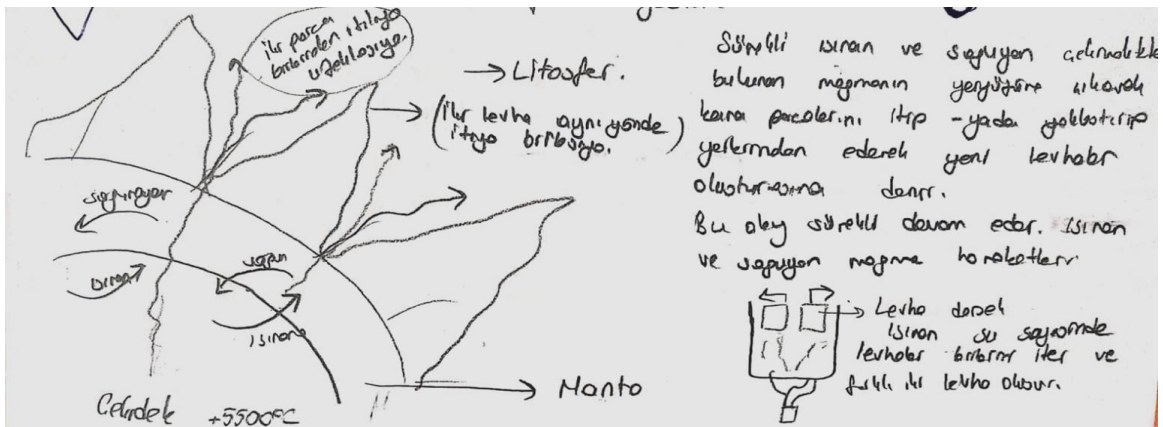 iki parça
birbirinden itilaya
uzaklaşıyo.
→ Litosfer.
(iki levha aynı yönde
itiyo birbirini.)
soğumayan
ısınan
soğuk
ısınan
→ Manto
Çekirdek +5500°C
Sürekli ısınan ve soğuyan çekirdekte
bulunan magmanın yeryüzüne çıkarak
kara parçalarını itip -yada yaklaştırıp
yerlerinden ederek yeni levhalar
oluşturmasına denir.
Bu olay sürekli devam eder. ısınan
ve soğuyan magma hareketleri
→ Levha dersek
ısınan su sayesinde
levhalar birbirini iter ve
farklı iki levha oluşur.